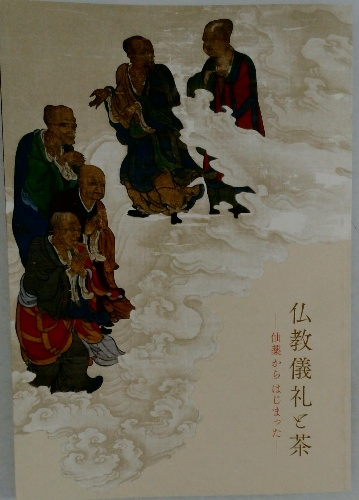 仏教儀礼と茶
―仙薬からはじまった―